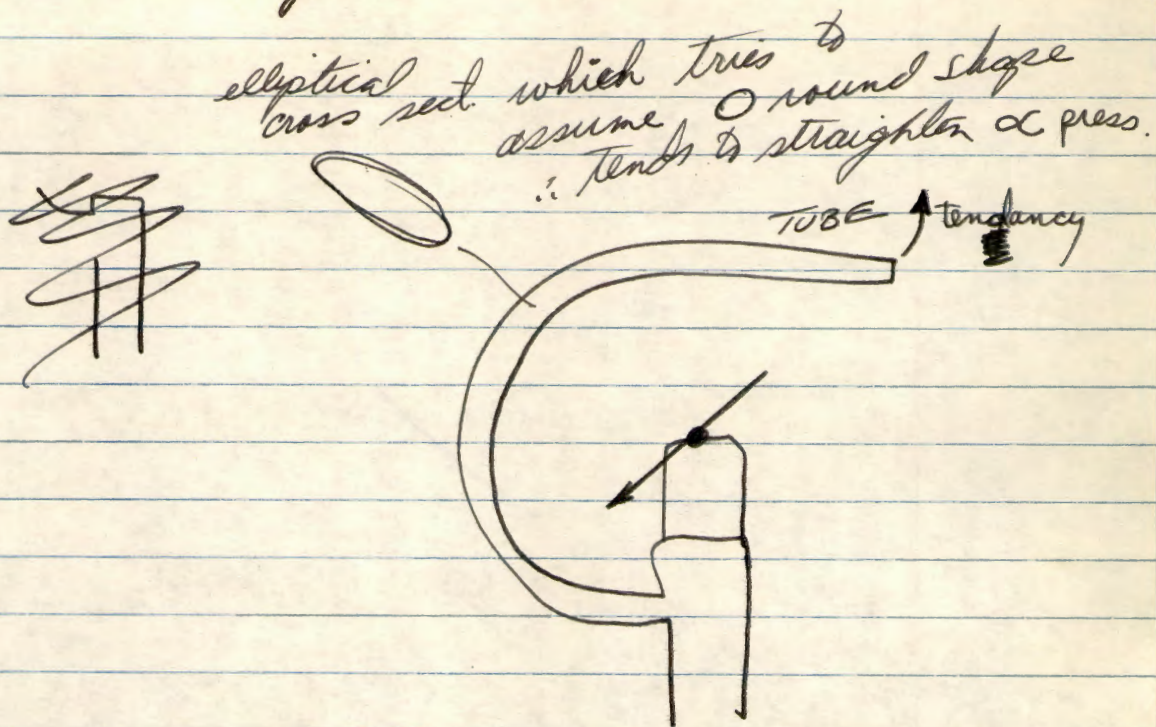 elliptical
cross sect. which tries to
assume O round shape
∴ tends to straighten ∝ press.
TUBE tendancy